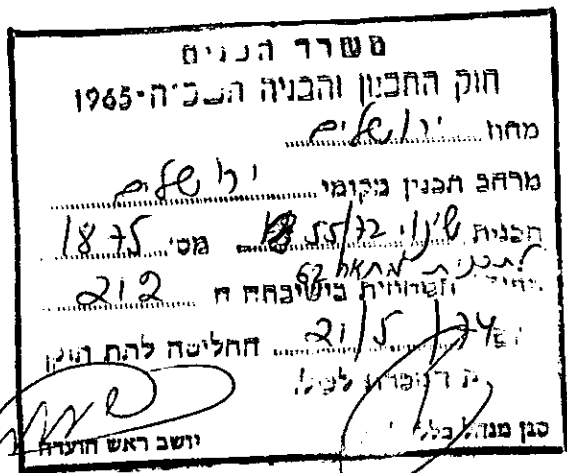 משרד הפנים
חוק התכנון והבניה תשכ"ה-1965
מחוז ירושלים
מרחב תכנון מקומי ירושלים
תכנית שינוי 55/72 מס' 1875
לתכנית מתאר 62
הועדה המחוזית בישיבתה ה 212
מיום 21/5/74 החליטה להת תוקף
לתכנית הנזכרת לעיל.
סגן מנהל כללי
יושב ראש הועדה